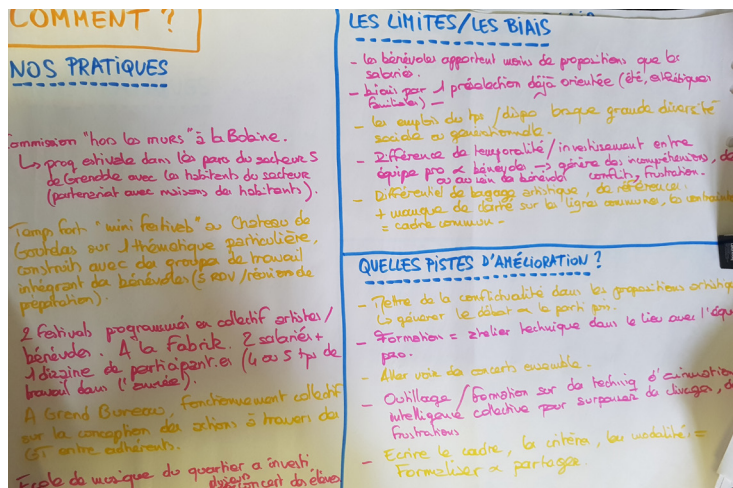 COMMENT ?
NOS PRATIQUES
Commission "hors les murs" à la Bobine.
↳ prog estivale dans les parcs du secteur 5
de Grenoble avec les habitants du secteur
(partenariat avec maisons des habitants).
Temps fort "mini festivals" au Chateau de
Goutelas sur 1 thématique particulière,
construits avec des groupes de travail
intégrant des bénévoles (5 RDV / réunion de
préparation).
2 festivals programmés en collectif artistes /
bénévoles. A la Fabrik. 2 salariés +
1 dizaine de participant.es (4 ou 5 tps de
travail dans l'année).
A Grand Bureau, fonctionnement collectif
sur la conception des actions à travers des
GT entre adhérents.
Ecole de musique du quartier a investi
concert des élèves
LES LIMITES/LES BIAIS
- les bénévoles apportent moins de propositions que les
salariés.
- biais par 1 présélection déjà orientée (été, esthétiques
familiales) -
- les emplois du tps / dispo brasse grande diversité
sociale ou générationnelle.
- Différence de temporalité / investissement entre
équipe pro & bénévoles → génère des incompréhensions, de
ou au sein des bénévoles conflits, frustration.
- Différentiel de bagage artistique, de références
+ manque de clarté sur la ligne commune, les contraintes
= cadre commun -
QUELLES PISTES D'AMÉLIORATION ?
- Mettre de la conflictualité dans les propositions artistiq
↳ générer le débat & le parti pris.
- Formation = atelier technique dans le lieu avec l'équ
pro.
- Aller voir des concerts ensemble.
- Outillage / formation sur des techniq d'animation
intelligence collective pour surpasser des clivages, d
frustrations
- Ecrire le cadre, les critères, les modalités =
Formaliser & partager.